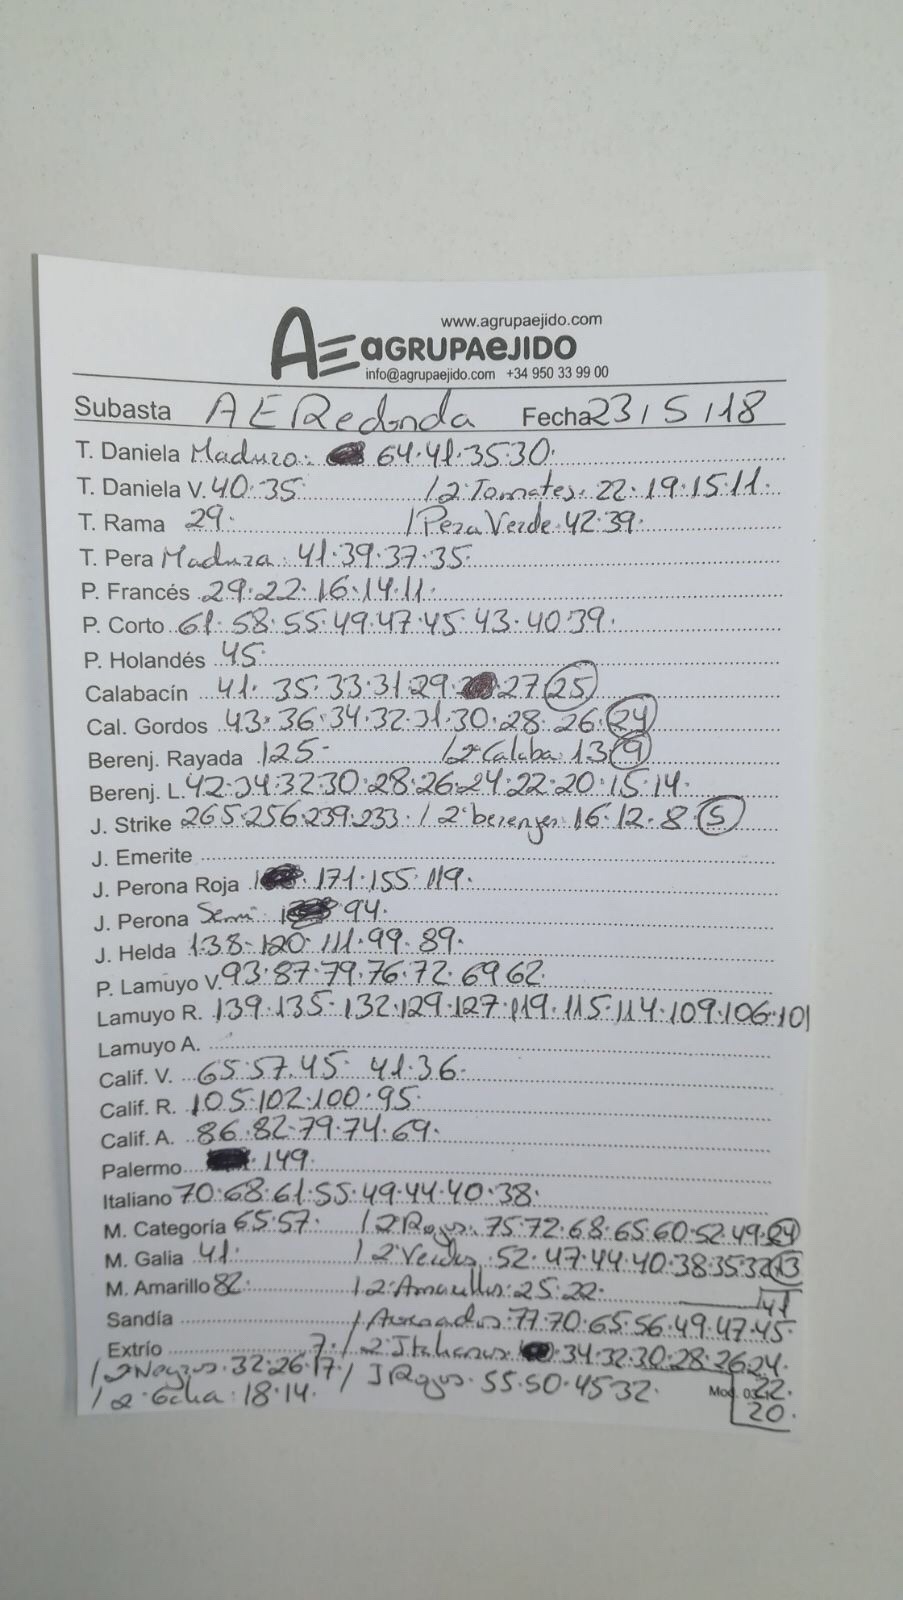 www.agrupaejido.com
AE aGRUPAeJIDO
info@agrupaejido.com +34 950 33 99 00
Subasta AE Redonda Fecha 23/5/18
T. Daniela Maduro: 64.41.35.30.
T. Daniela V. 40.35 /2ª Tomates. 22.19.15.11.
T. Rama 29. /Pera Verde 42.39.
T. Pera Madura. 41.39.37.35.
P. Francés 29.22.16.14.11.
P. Corto 61.58.55.49.47.45.43.40.39.
P. Holandés 45.
Calabacín 41.35.33.31.29.27.25
Cal. Gordos 43.36.34.32.31.30.28.26.24
Berenj. Rayada 125- /2ª Calaba: 13.9
Berenj. L. 42.34.32.30.28.26.24.22.20.15.14.
J. Strike 265.256.239.233. /2ª berenjes 16.12.8.5
J. Emerite
J. Perona Roja 171.155.119.
J. Perona Semi. 94.
J. Helda 138.120.111.99.89.
P. Lamuyo V. 93.87.79.76.72.69.62.
Lamuyo R. 139.135.132.129.127.119.115.114.109.106.101
Lamuyo A.
Calif. V. 65.57.45.41.36.
Calif. R. 105.102.100.95.
Calif. A. 86.82.79.74.69.
Palermo 149.
Italiano 70.68.61.55.49.44.40.38.
M. Categoría 65.57. /2ª Rojos. 75.72.68.65.60.52.49.24
M. Galia 41. /2ª Verdes. 52.47.44.40.38.35.32.13
M. Amarillo 82. /2ª Amarillos. 25.22.
41
Sandía /Asurcados. 77.70.65.56.49.47.45.
Extrío 7. /2ª Italianos. 34.32.30.28.26.24.
/2ª Negros. 32.26.17. /J Rojos. 55.50.45.32. 22.
/2ª Galia: 18.14. 20.